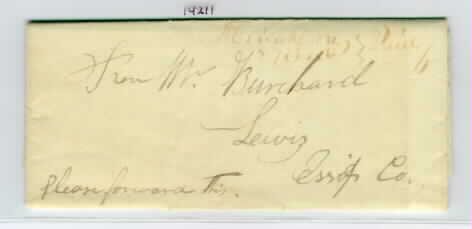 19211
From Mr. Burchard
Lewis
Essex Co.
please forward this.